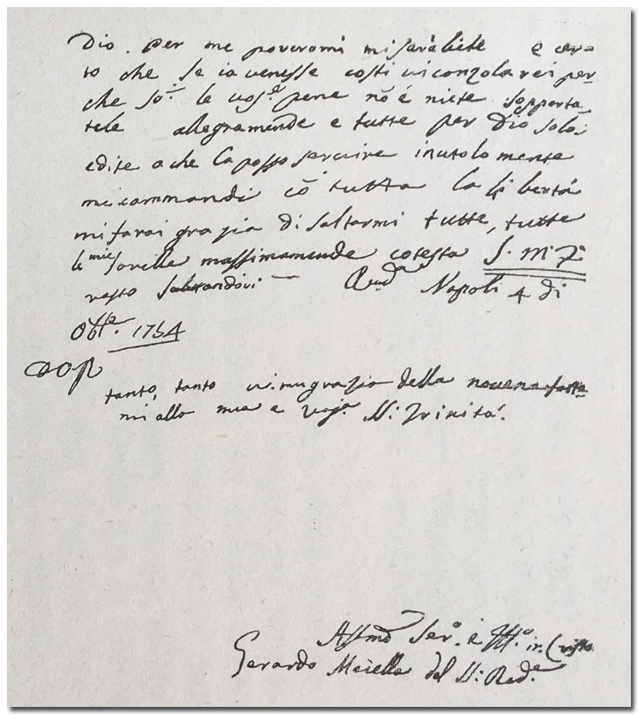 Dio. per me poveromi miserabile e cer-
to che se io venesse costì vi conzolarei per-
che so le vos.e pene nō è niete sopporta
tele allegramende e tutte per Dio solo;
edite a che la posso servire inutolomente
mi commandi cō tutta la libertà
mi farai grazia di saltarmi tutte, tutte
le mie sorelle massimamende cotesta S. M.
resto salutandovi — Napoli 4 di
Ott.e 1754
tanto, tanto vi ringrazio della novena fatta
mi alla mia e vos.a SS: Trinità.
Aff.mo Ser.o e ff.o in Cristo
Gerardo Maiella del SS: Red.e